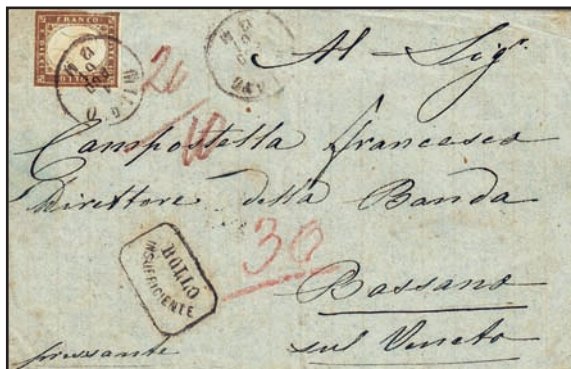 FRANCO
BOLLO
MILANO
12 M
61
12 M
Al Sig.r
20
10
Campostella Francesco
Direttore della Banda
30
BOLLO
INSUFFICIENTE
Bassano
sul Veneto
pressante